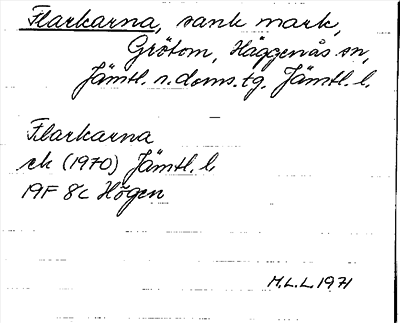 Flarkarna, sank mark,
Grötom, Häggenås sn,
Jämtl. n. doms. tg. Jämtl. l.
Flarkarna
ek (1970) Jämtl. l.
19F 8c Högen
M.L.L. 1971